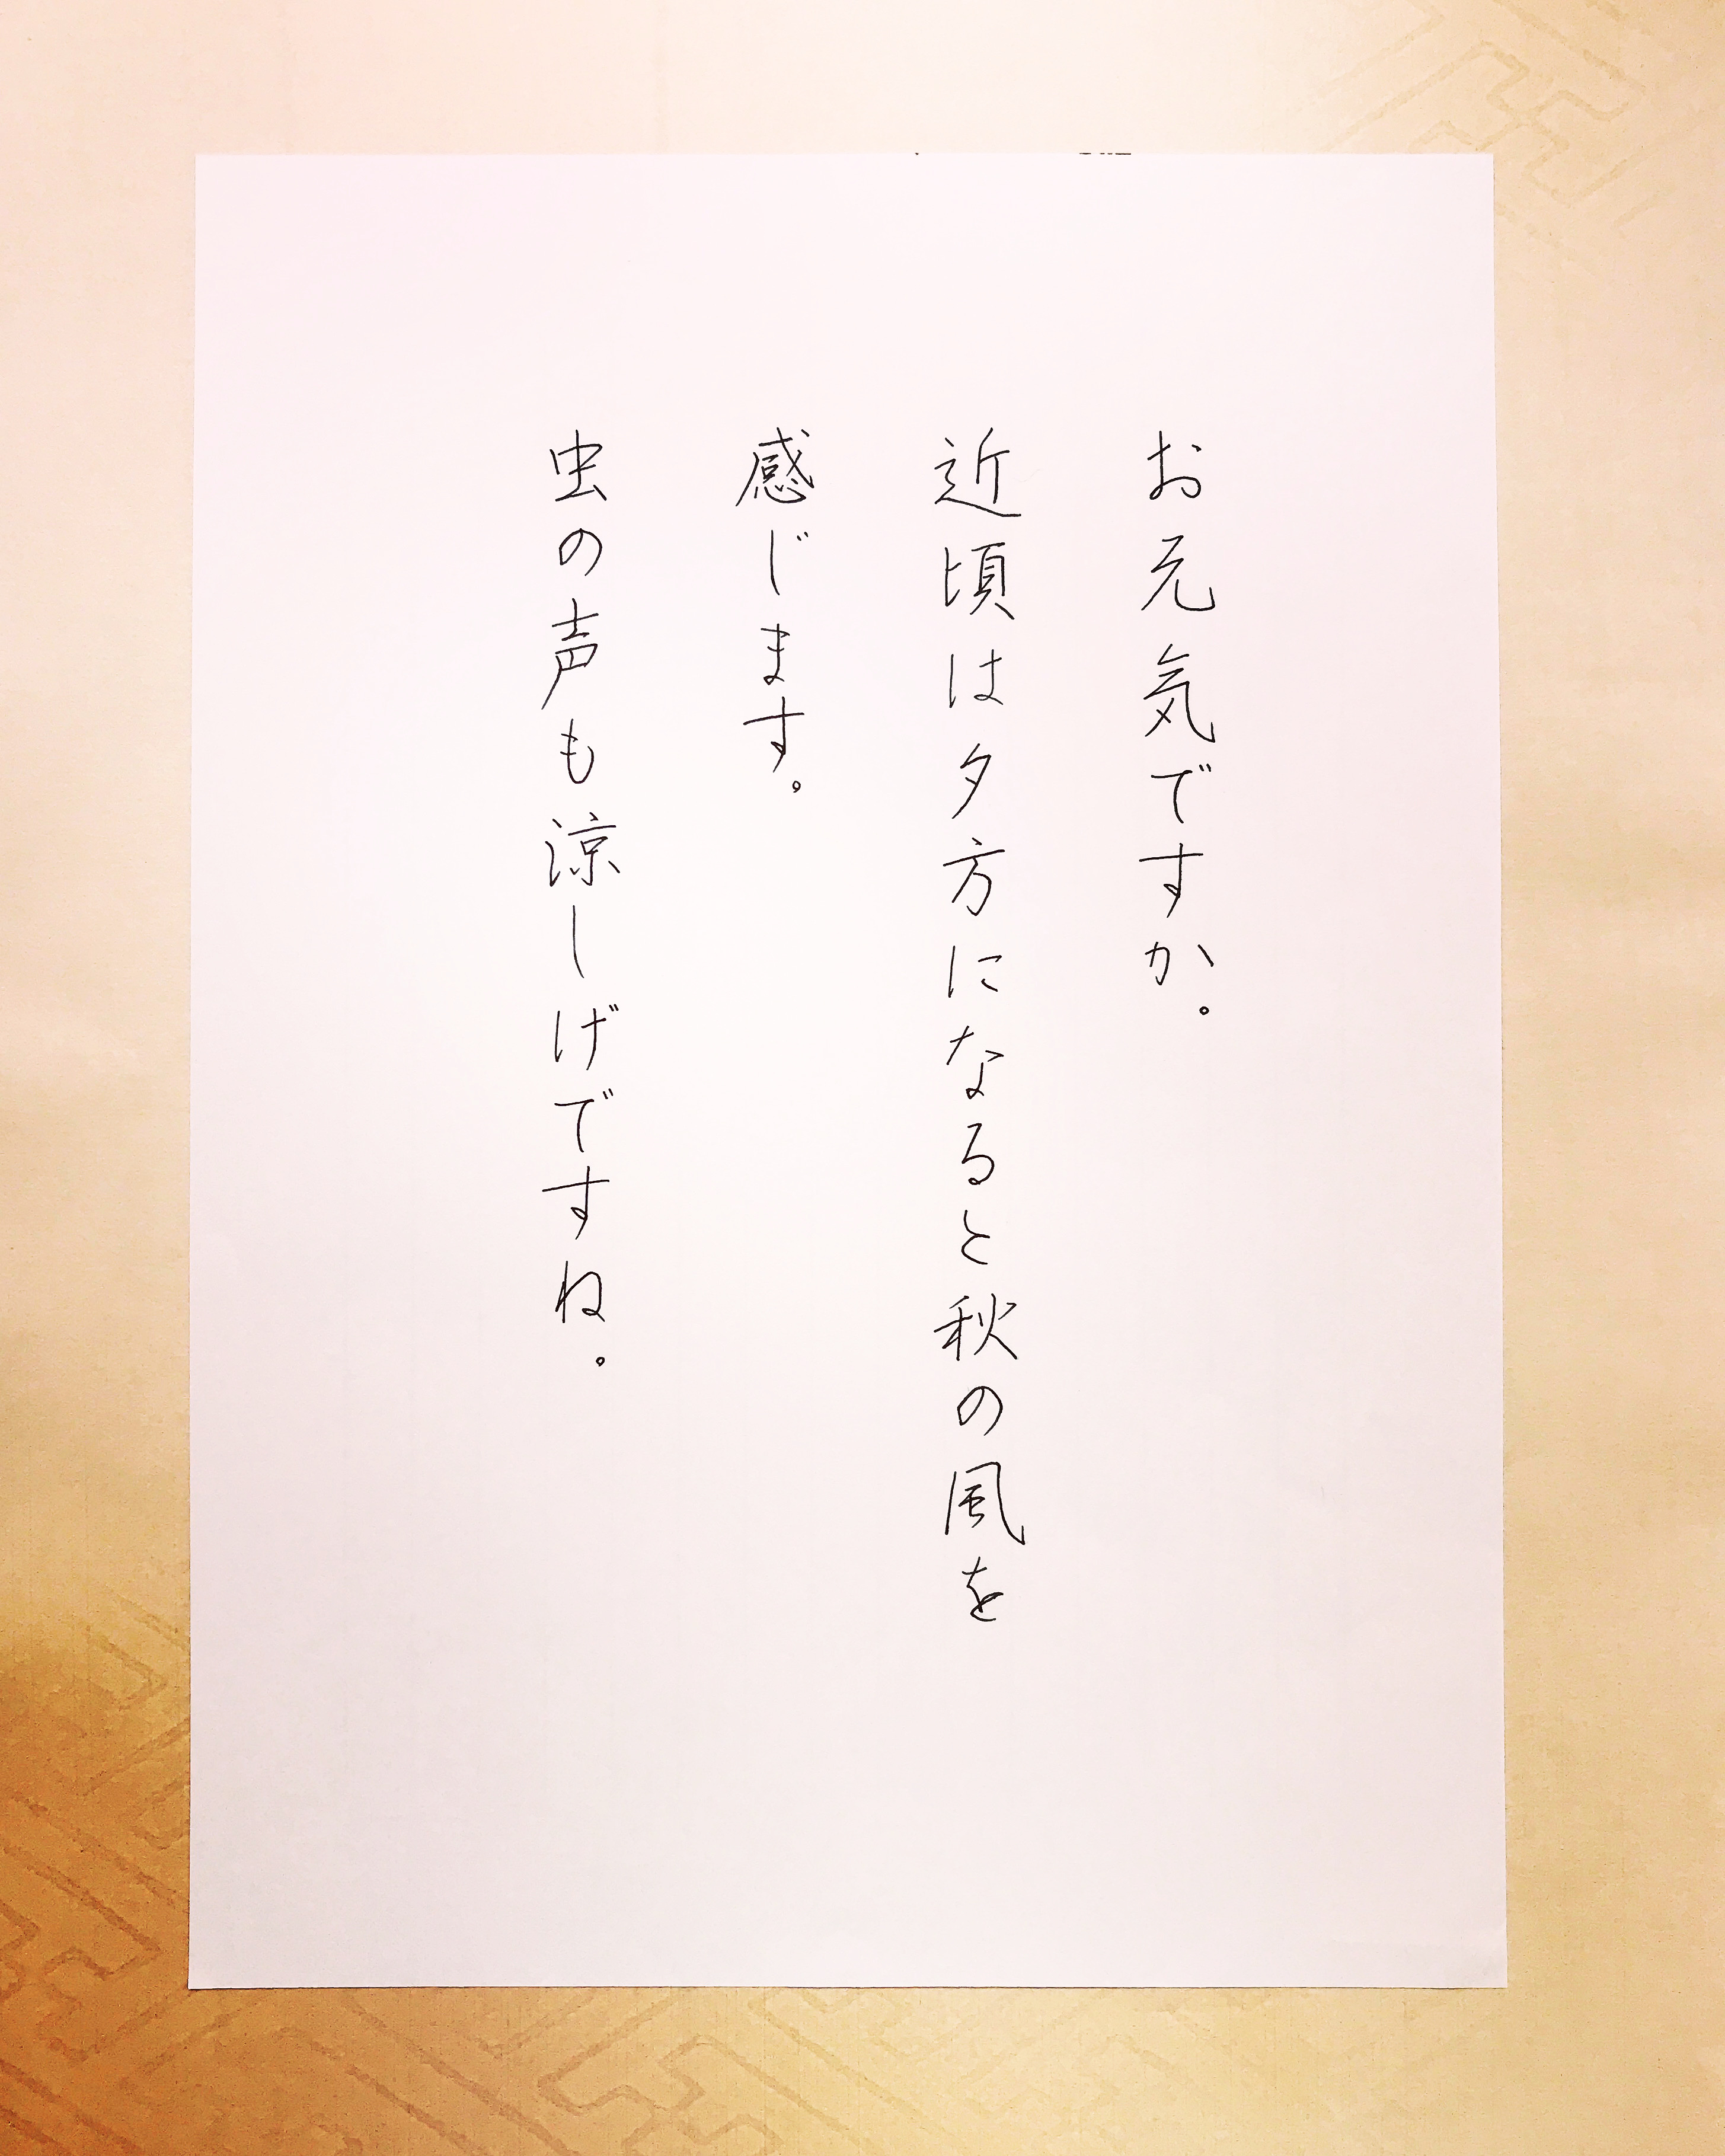 お元気ですか。
近頃は夕方になると秋の風を
感じます。
虫の声も涼しげですね。